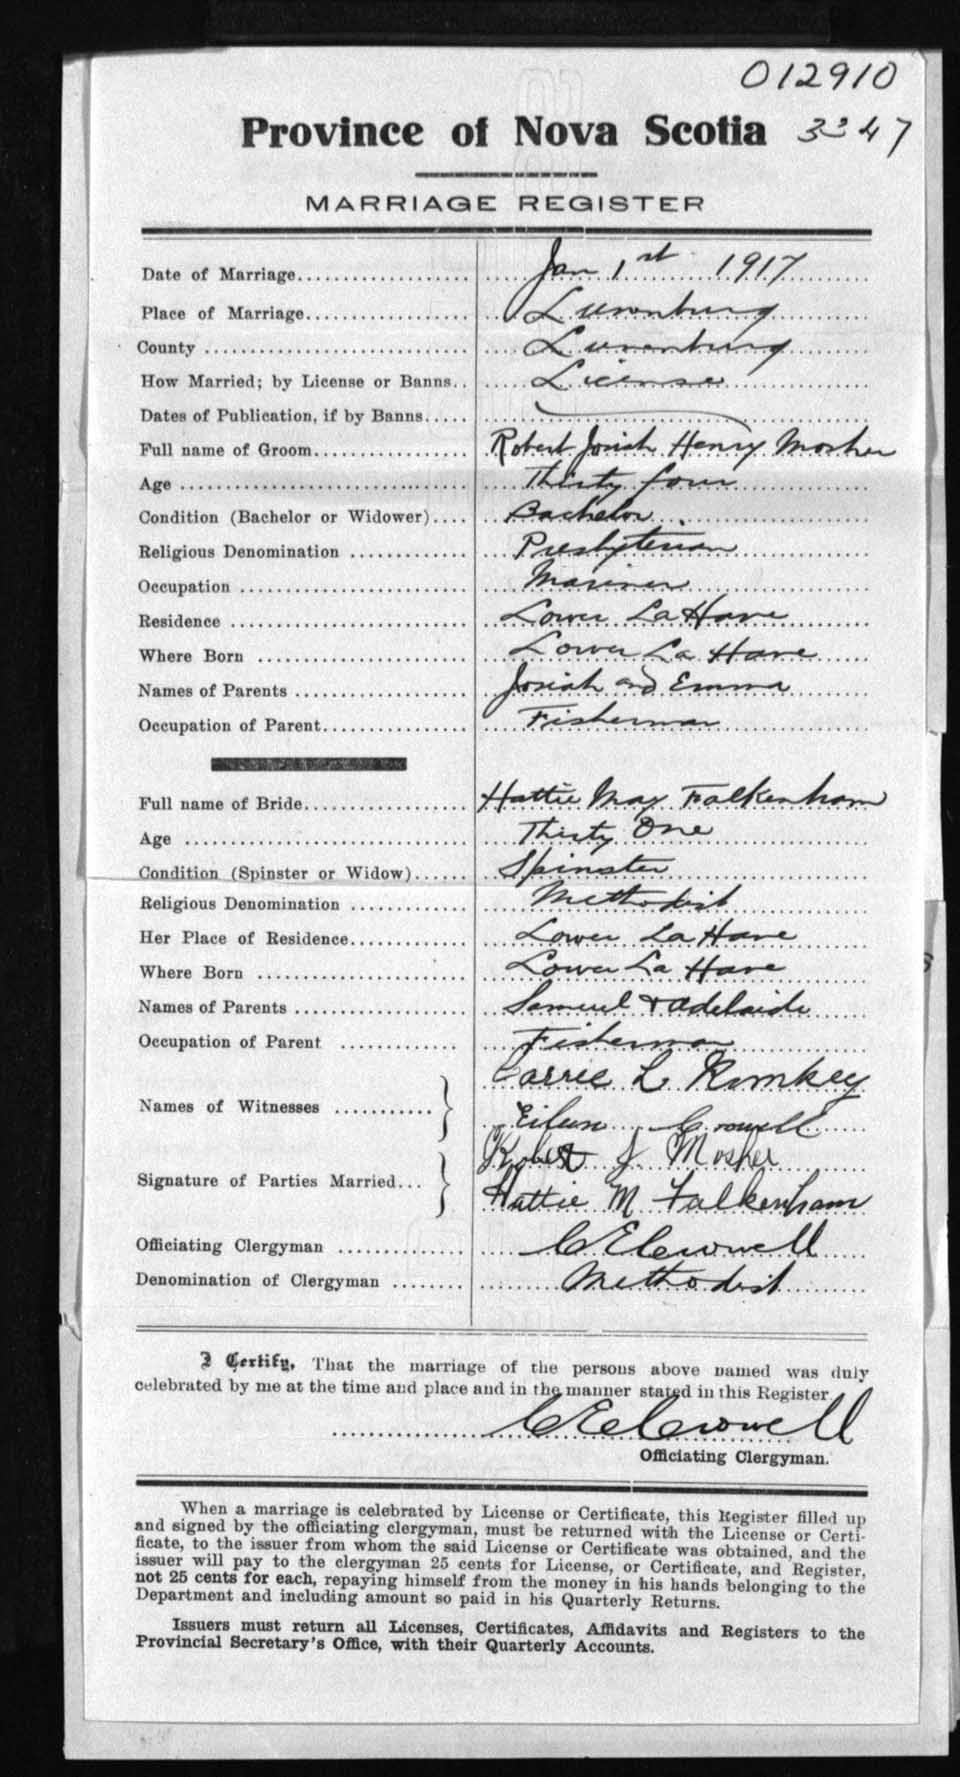 012910
Province of Nova Scotia 3347
MARRIAGE REGISTER
Date of Marriage.................. Jan 1st 1917
Place of Marriage................. Lunenburg
County ........................... Lunenburg
How Married; by License or Banns.. License
Dates of Publication, if by Banns.....
Full name of Groom................ Robert Josiah Henry Mosher
Age .............................. Thirty four
Condition (Bachelor or Widower).... Bachelor
Religious Denomination ............ Presbyterian
Occupation ....................... Mariner
Residence ........................ Lower La Have
Where Born ....................... Lower La Have
Names of Parents ................. Josiah and Emma
Occupation of Parent.............. Fisherman
Full name of Bride................ Hattie May Falkenham
Age .............................. Thirty One
Condition (Spinster or Widow)...... Spinster
Religious Denomination ............ Methodist
Her Place of Residence............ Lower La Have
Where Born ....................... Lower La Have
Names of Parents ................. Samuel & Adelaide
Occupation of Parent ............. Fisherman
Carrie L Romkey
Names of Witnesses ..........
Eileen Crowell
Robert J Mosher
Signature of Parties Married...
Hattie M Falkenham
Officiating Clergyman ............ C E Crowell
Denomination of Clergyman ........ Methodist
I Certify, That the marriage of the persons above named was duly
celebrated by me at the time and place and in the manner stated in this Register
C E Crowell
Officiating Clergyman.
When a marriage is celebrated by License or Certificate, this Register filled up
and signed by the officiating clergyman, must be returned with the License or Certi-
ficate, to the issuer from whom the said License or Certificate was obtained, and the
issuer will pay to the clergyman 25 cents for License, or Certificate, and Register,
not 25 cents for each, repaying himself from the money in his hands belonging to the
Department and including amount so paid in his Quarterly Returns.
Issuers must return all Licenses, Certificates, Affidavits and Registers to the
Provincial Secretary's Office, with their Quarterly Accounts.